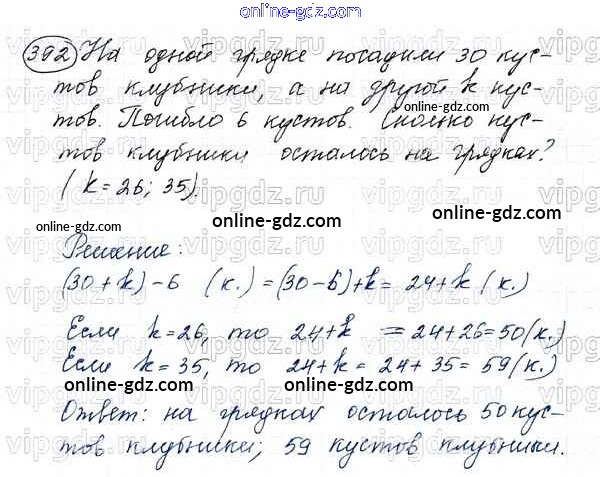 online-gdz.com
392 На одной грядке посадили 30 кус-
тов клубники, а на другой k кус-
online-gdz.com online-gdz.com
тов. Погибло 6 кустов. Сколько кус-
тов клубники осталось на грядках?
(k=26; 35).
online-gdz.com online-gdz.com
Решение:
(30+k)-6 (к.) = (30-6)+k = 24+k (к.)
online-gdz.com
Если k=26, то 24+k = 24+26=50 (к.)
Если k=35, то 24+k = 24+35=59 (к.)
online-gdz.com online-gdz.com
Ответ: на грядках осталось 50 кус-
тов клубники; 59 кустов клубники.